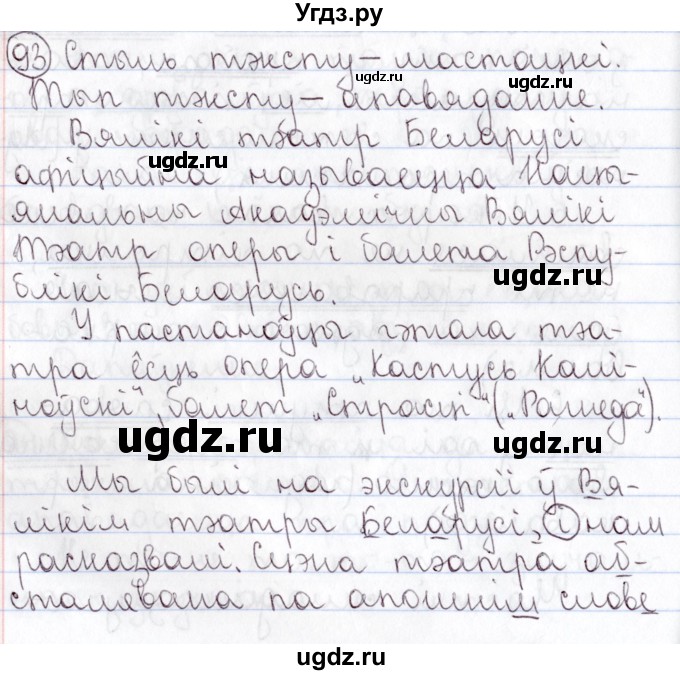 Угдз.ру
93 Стыль тэксту – мастацкі
ugdz.ru
Тып тэксту – апавяданне.
ugdz.ru
Вялікі тэатр Беларусі
афіцыйна называецца Нацы-
янальны Акадэмічны Вялікі
тэатр оперы і балета Рэспу-
блікі Беларусь.
ugdz.ru
У пастаноўцы гэтага тэа-
тра ёсць опера „Кастусь Калі-
ноўскі“ балет „Страсці“ („Рагнеда“).
ugdz.ru
ugdz.ru
Мы былі на экскурсіі ў Вя-
лікім тэатры Беларусі, і нам
расказвалі. Сцэна тэатра аб-
сталявана па апошнім слове
ugdz.ru